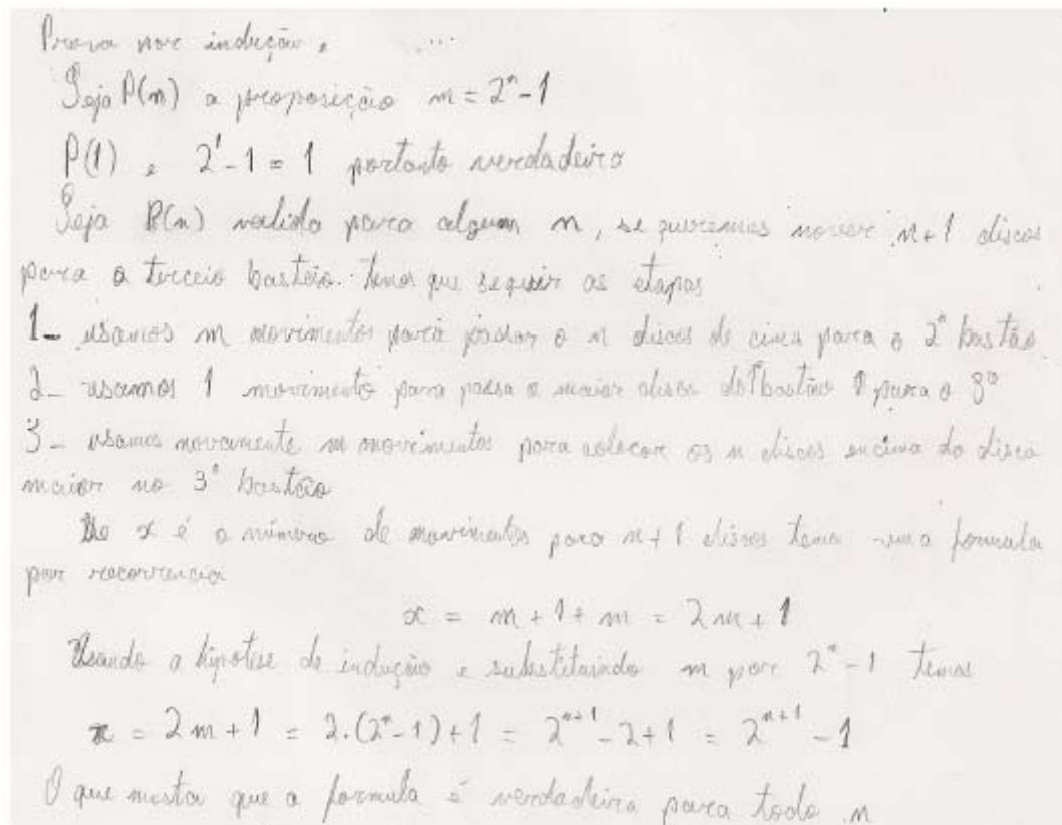 Prova por indução. ...
Seja P(n) a proposição m = 2ⁿ - 1
P(1) e 2¹ - 1 = 1 portanto verdadeiro
Seja P(n) valido para algum n, se queremos mover n+1 discos
para o terceio bastão. temos que seguir as etapas
1- usamos m movimentos para passar o n discos de cima para o 2º bastão
2- usamos 1 movimento para passa o maior disco do bastão 1 para o 3º
3- usamos novamente m movimentos para colocar os n discos encima do disco
maior no 3º bastão
Se x é o número de movimentos para n+1 discos temos uma formula
por recorrencia
x = m + 1 + m = 2m + 1
Usando a hipotese de indução e substituindo m por 2ⁿ - 1 temos
x = 2m + 1 = 2.(2ⁿ - 1) + 1 = 2ⁿ⁺¹ - 2 + 1 = 2ⁿ⁺¹ - 1
O que mostra que a formula é verdadeira para todo n